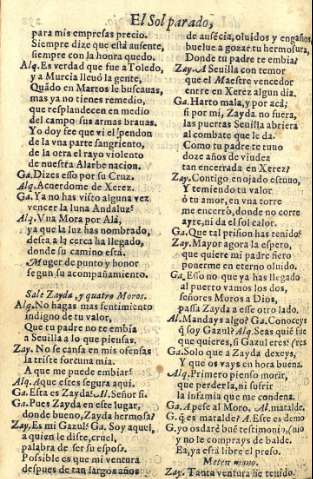 El Sol parado,
para mis empresas precio.
Siempre dize que està ausente,
siempre con la honra quedo.
Alq. Es verdad que fue a Toledo,
y a Murcia lleuó la gente,
Quãdo en Martos le buscauas,
mas ya no tienes remedio,
que resplandecen en medio
del campo sus armas brauas.
Yo doy fee que vi el pendon
de la vna parte sangriento,
de la otra el rayo violento
de nuestra Alarbe nacion.
Ga. Dizes esso por su Cruz.
Alq. Acuerdome de Xerez.
Ga. Ya no has visto alguna vez
vencer la luna Andaluz?
Alq. Vna Mora por Alà,
ya que la luz has nombrado,
desta a la cerca ha llegado,
donde su camino està.
Muger de punto y honor
segun su acompañamiento.
Sale Zayda, y quatro Moros.
Alq. No hagas mas sentimiento
indigno de tu valor,
Que tu padre no te embia
a Seuilla a lo que piensas.
Zay. No se cansa en mis ofensas
la triste fortuna mia.
A que me puede embiar?
Alq. A que estes segura aqui.
Ga. Esta es Zayda? Al. Señor si.
Ga. Pues Zayda en este lugar,
donde bueno, Zayda hermosa?
Zay. Es mi Gazul? Ga. Soy aquel,
a quien le diste, cruel,
palabra de ser su esposa.
Possible es que mi ventura
despues de tan largos años
de ausẽcia, oluidos y engaños,
buelue a gozar tu hermosura,
Donde tu padre te embia?
Zay. A Seuilla con temor
que el Maestre vencedor
entre en Xerez algun dia.
Ga. Harto mala, y por acà;
si por mi, Zayda, no fuera,
las puertas Seuilla abriera
al combate que le dà.
Como tu padre te tuuo
doze años de viudez
tan encerrada en Xerez?
Zay. Contigo enojado estuuo,
Y temiendo tu valor
ò tu amor, en vna torre
me encerrò, donde no corre
ayre, ni da el sol calor.
Ga. Que tal prision has tenido?
Zay. Mayor agora la espero,
que quiere mi padre fiero
ponerme en eterno oluido.
Ga. Esso no que ya has llegado
al puerto vamos los dos,
señores Moros a Dios,
passa Zayda este otro lado.
Al. Mandays algo? Ga. Conoceys
q̃ soy Gazul? Alq. Seas quiẽ fueres
que quieres, si Gazul eres?
Ga. Solo que a Zayda dexeys,
Y que os vays en hora buena.
Alq. Primero pienso morir,
que perderla, ni sufrir
la infamia que me condena.
Ga. Apeste al Moro. Al. matalde.
G. q̃ es matalde? A. Este es demonio
G. yo os darè buẽ testimonio, suyo
y no le comprays de balde.
Ea, ya està libre el preso.
Meten mano.
Zay. Tanta ventura he tenido.